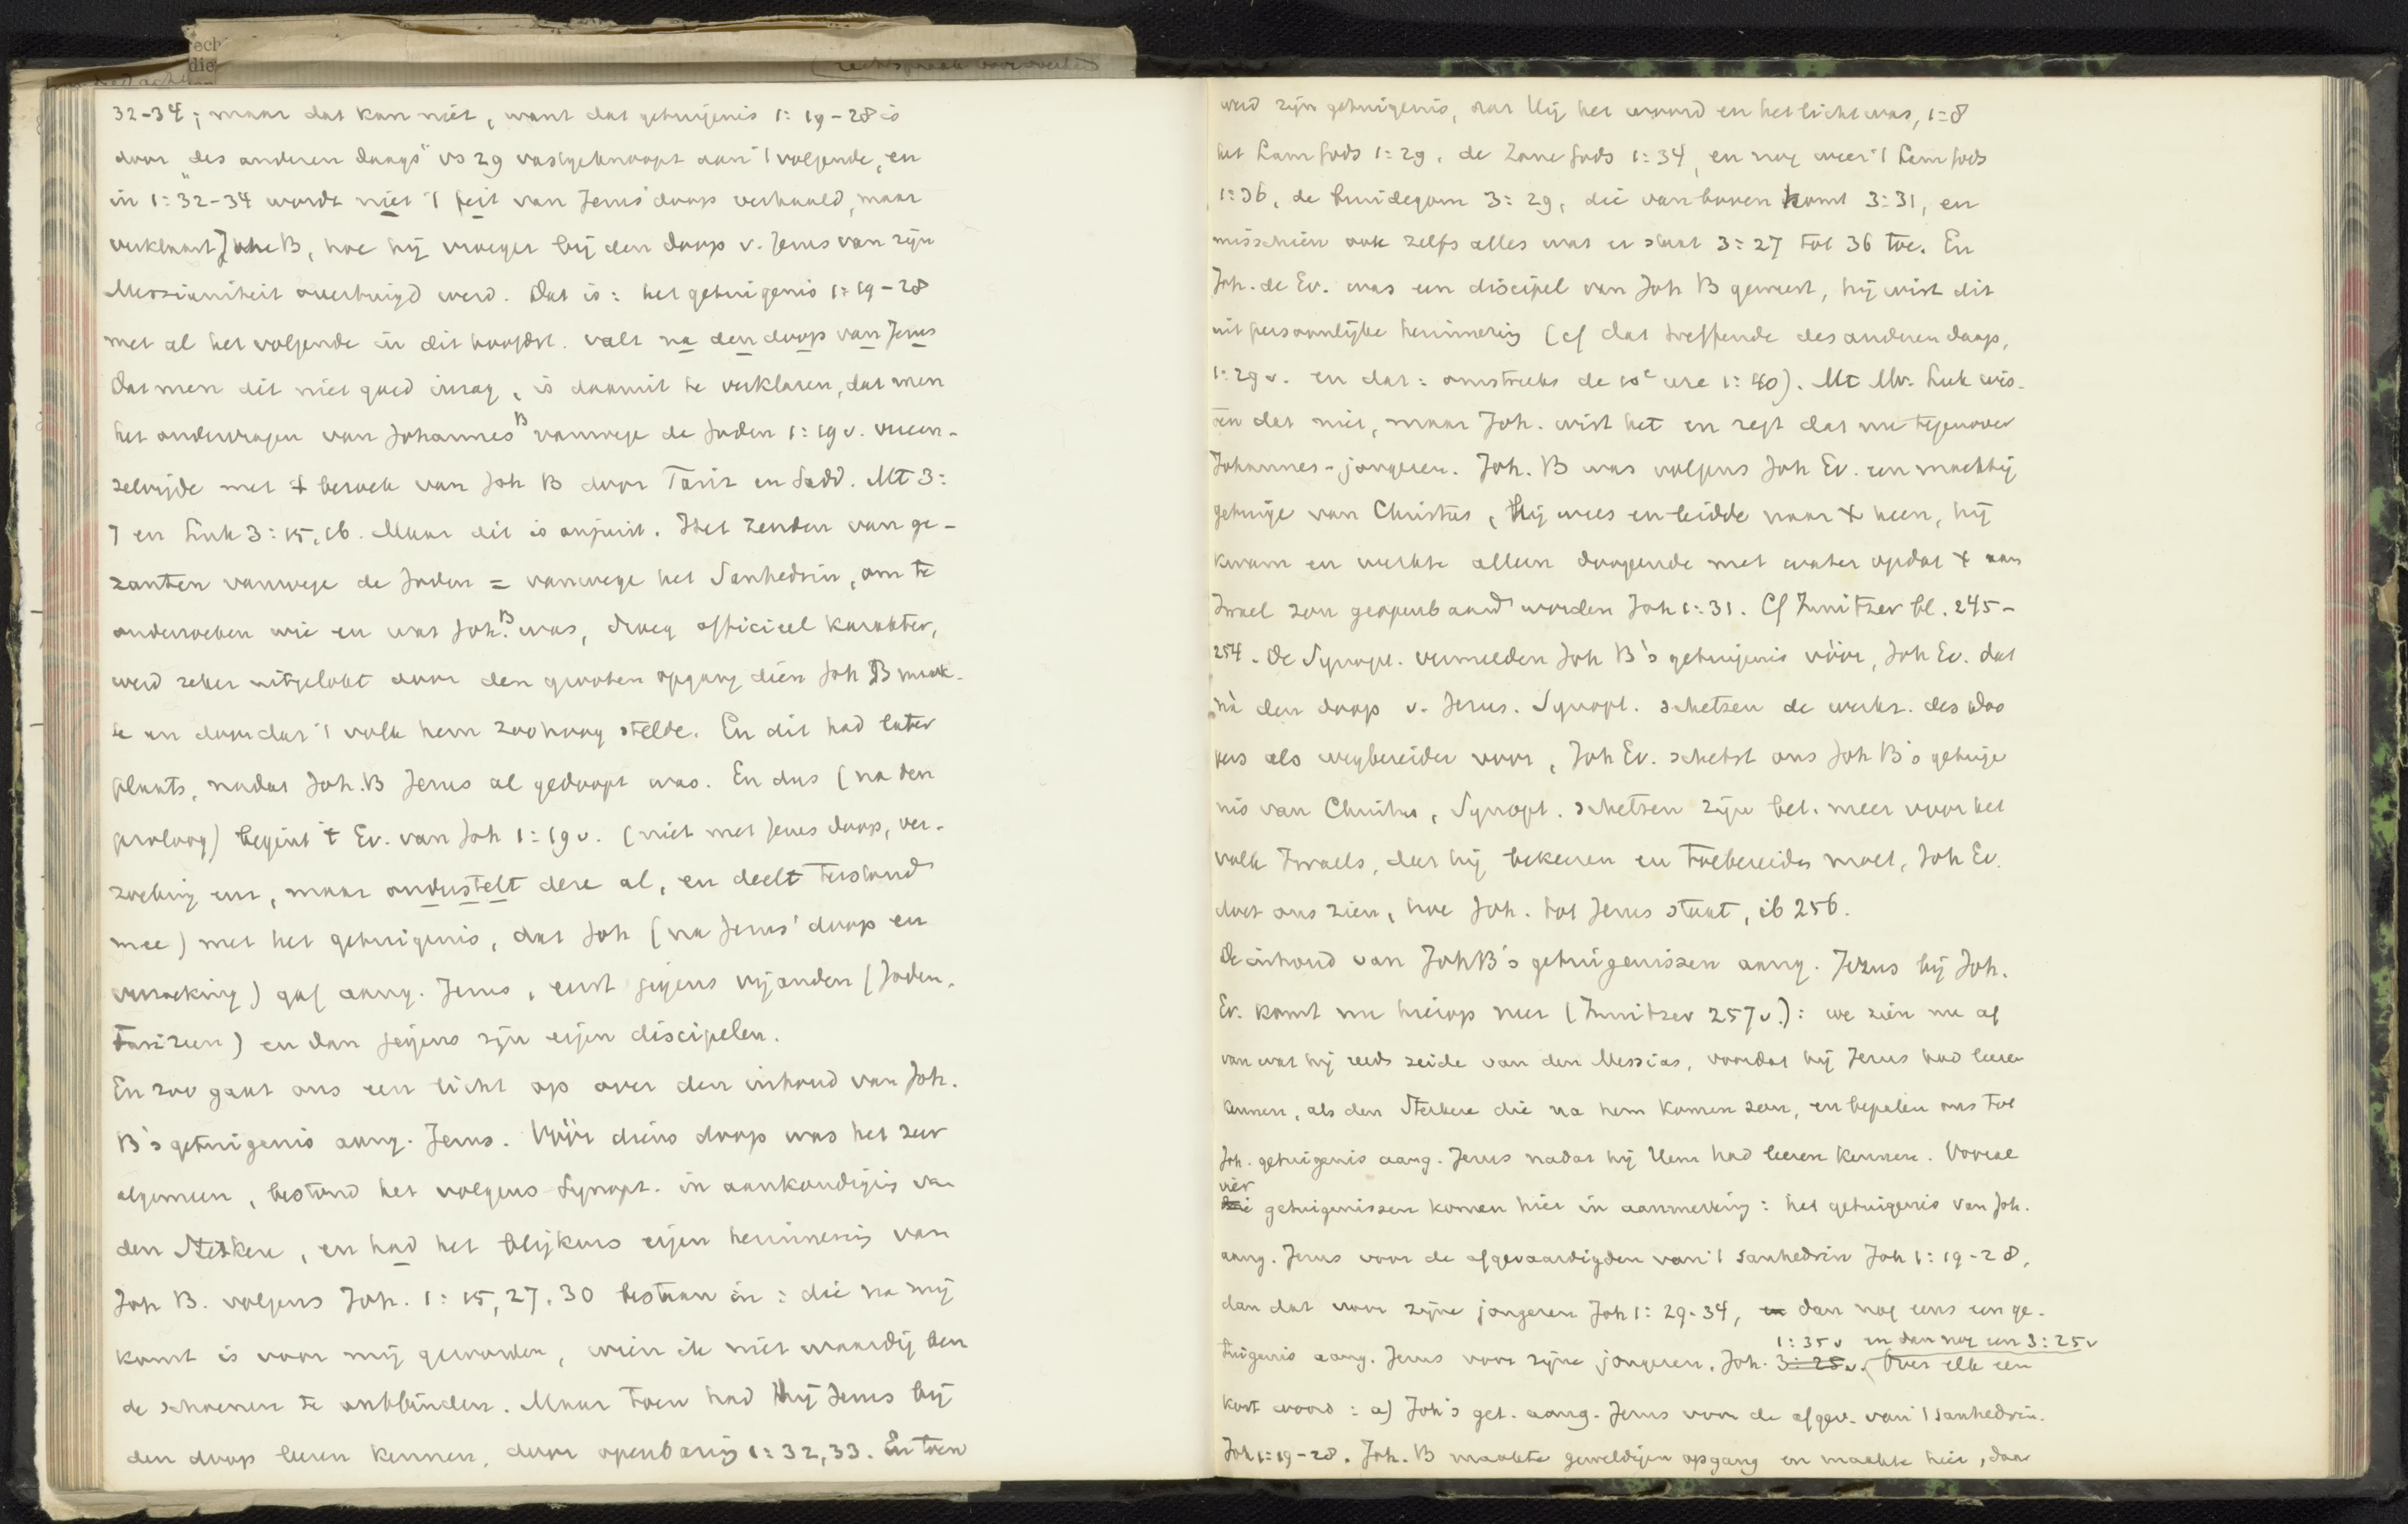 ech
die
32-34; maar dat kan niet, want dat getuigenis 1:19-28 is
door "des anderen daags" vs 29 vastgeknoopt aan 't volgende, en
in 1:32-34 wordt niet 't feit van Jezus' doop verhaald, maar
verklaart Joh B, hoe hij vroeger bij den doop v. Jezus van zijn
Messianiteit overtuigd werd. Dat is: het getuigenis 1:19-28
met al het volgende in dit hoofdst. valt na den doop van Jezus
Dat men dit niet goed inzag, is daaruit te verklaren, dat men
het ondervragen van Johannes B vanwege de Joden 1:19v. vereen-
zelvijde met 't bezoek van Joh B door Fariz en Sadd. Mt 3:
7 en Luk 3:15,16. Maar dit is onjuist. Het zenden van ge-
zanten vanwege de Joden = vanwege het Sanhedrin, om te
onderzoeken wie en wat Joh. B was, droeg officieel karakter,
werd zeker uitgelokt door den grooten opgang dien Joh B maak-
te en doordat 't volk hem zoo hoog stelde. En dit had later
plaats, nadat Joh.B Jezus al gedoopt was. En dus (na den
proloog) begint 't Ev. van Joh 1:19v. (niet met Jezus doop, ver-
zoeking enz, maar onderstelt deze al, en deelt terstond
mee) met het getuigenis, dat Joh (na Jezus' doop en
verzoeking) gaf aang. Jezus, eerst jegens vijanden (Joden,
Farizeen) en dan jegens zijn eigen discipelen.
En zoo gaat ons een licht op over den inhoud van Joh.
B's getuigenis aang. Jezus. Vóór diens doop was het zeer
algemeen, bestond het volgens Synopt. in aankondiging van
den Sterkere, en had het blijkens eigen herinnering van
Joh B. volgens Joh. 1:15,27,30 bestaan in: die na mij
komt is voor mij geworden, wien ik niet waardig ben
de schoenen te ontbinden. Maar toen had hij Jezus bij
den doop leeren kennen, door openbaring 1:32,33. En toen
werd zijn getuigenis, dat Hij het woord en het licht was, 1:8
het Lam Gods 1:29, de Zone Gods 1:34, en nog weer 't Lam Gods
1:36, de bruidegom 3:29, die van boven komt 3:31, en
misschien ook zelfs alles wat er staat 3:27 tot 36 toe. En
Joh. de Ev. was een discipel van Joh B geweest, hij wist dit
uit persoonlijke herinnering (cf dat treffende des anderen daags,
1:29v. en dat: omstreeks de 10e ure 1:40). Mt Mr. Luk wis-
ten dat niet, maar Joh. wist het en zegt dat nu tegenover
Johannes-jongeren. Joh. B was volgens Joh Ev. een machtig
getuige van Christus, Hij wees en leidde naar X heen, hij
kwam en werkte alleen doopende met water opdat X aan
Israel zou geopenbaard worden Joh 1:31. Cf Innitzer bl. 245-
254. De Synopt. vermelden Joh B's getuigenis vóór, Joh Ev. dat
nà den doop v. Jezus. Synopt. schetsen de werkz. des doo
pers als wegbereider voor, Joh Ev. schetst ons Joh B's getuige
nis van Christus, Synopt. schetsen zijne bet. meer voor het
volk Israels, dat hij bekeeren en toebereiden moet, Joh Ev.
doet ons zien, hoe Joh. tot Jezus staat, ib 256.
De inhoud van Joh B's getuigenissen aang. Jezus bij Joh.
Ev. komt nu hierop neer (Innitzer 257v.): we zien nu af
van wat hij reeds zeide van den Messias, voordat hij Jezus had leeren
kennen, als den Sterkere die na hem komen zou, en bepalen ons tot
Joh. getuigenis aang. Jezus nadat hij Hem had leeren kennen. Vooral
vier
drie getuigenissen komen hier in aanmerking: het getuigenis van Joh.
aang. Jezus voor de afgevaardigden van 't Sanhedrin Joh 1:19-28,
dan dat voor zijne jongeren Joh 1:29-34, en dan nog eens een ge-
1:35v en dan nog een 3:25v
tuigenis aang. Jezus voor zijne jongeren, Joh. 3:25v. Over elk een
kort woord: a) Joh's get. aang. Jezus voor de afgev. van 't Sanhedrin.
Joh 1:19-28. Joh. B maakte geweldigen opgang en maakte hier, daar